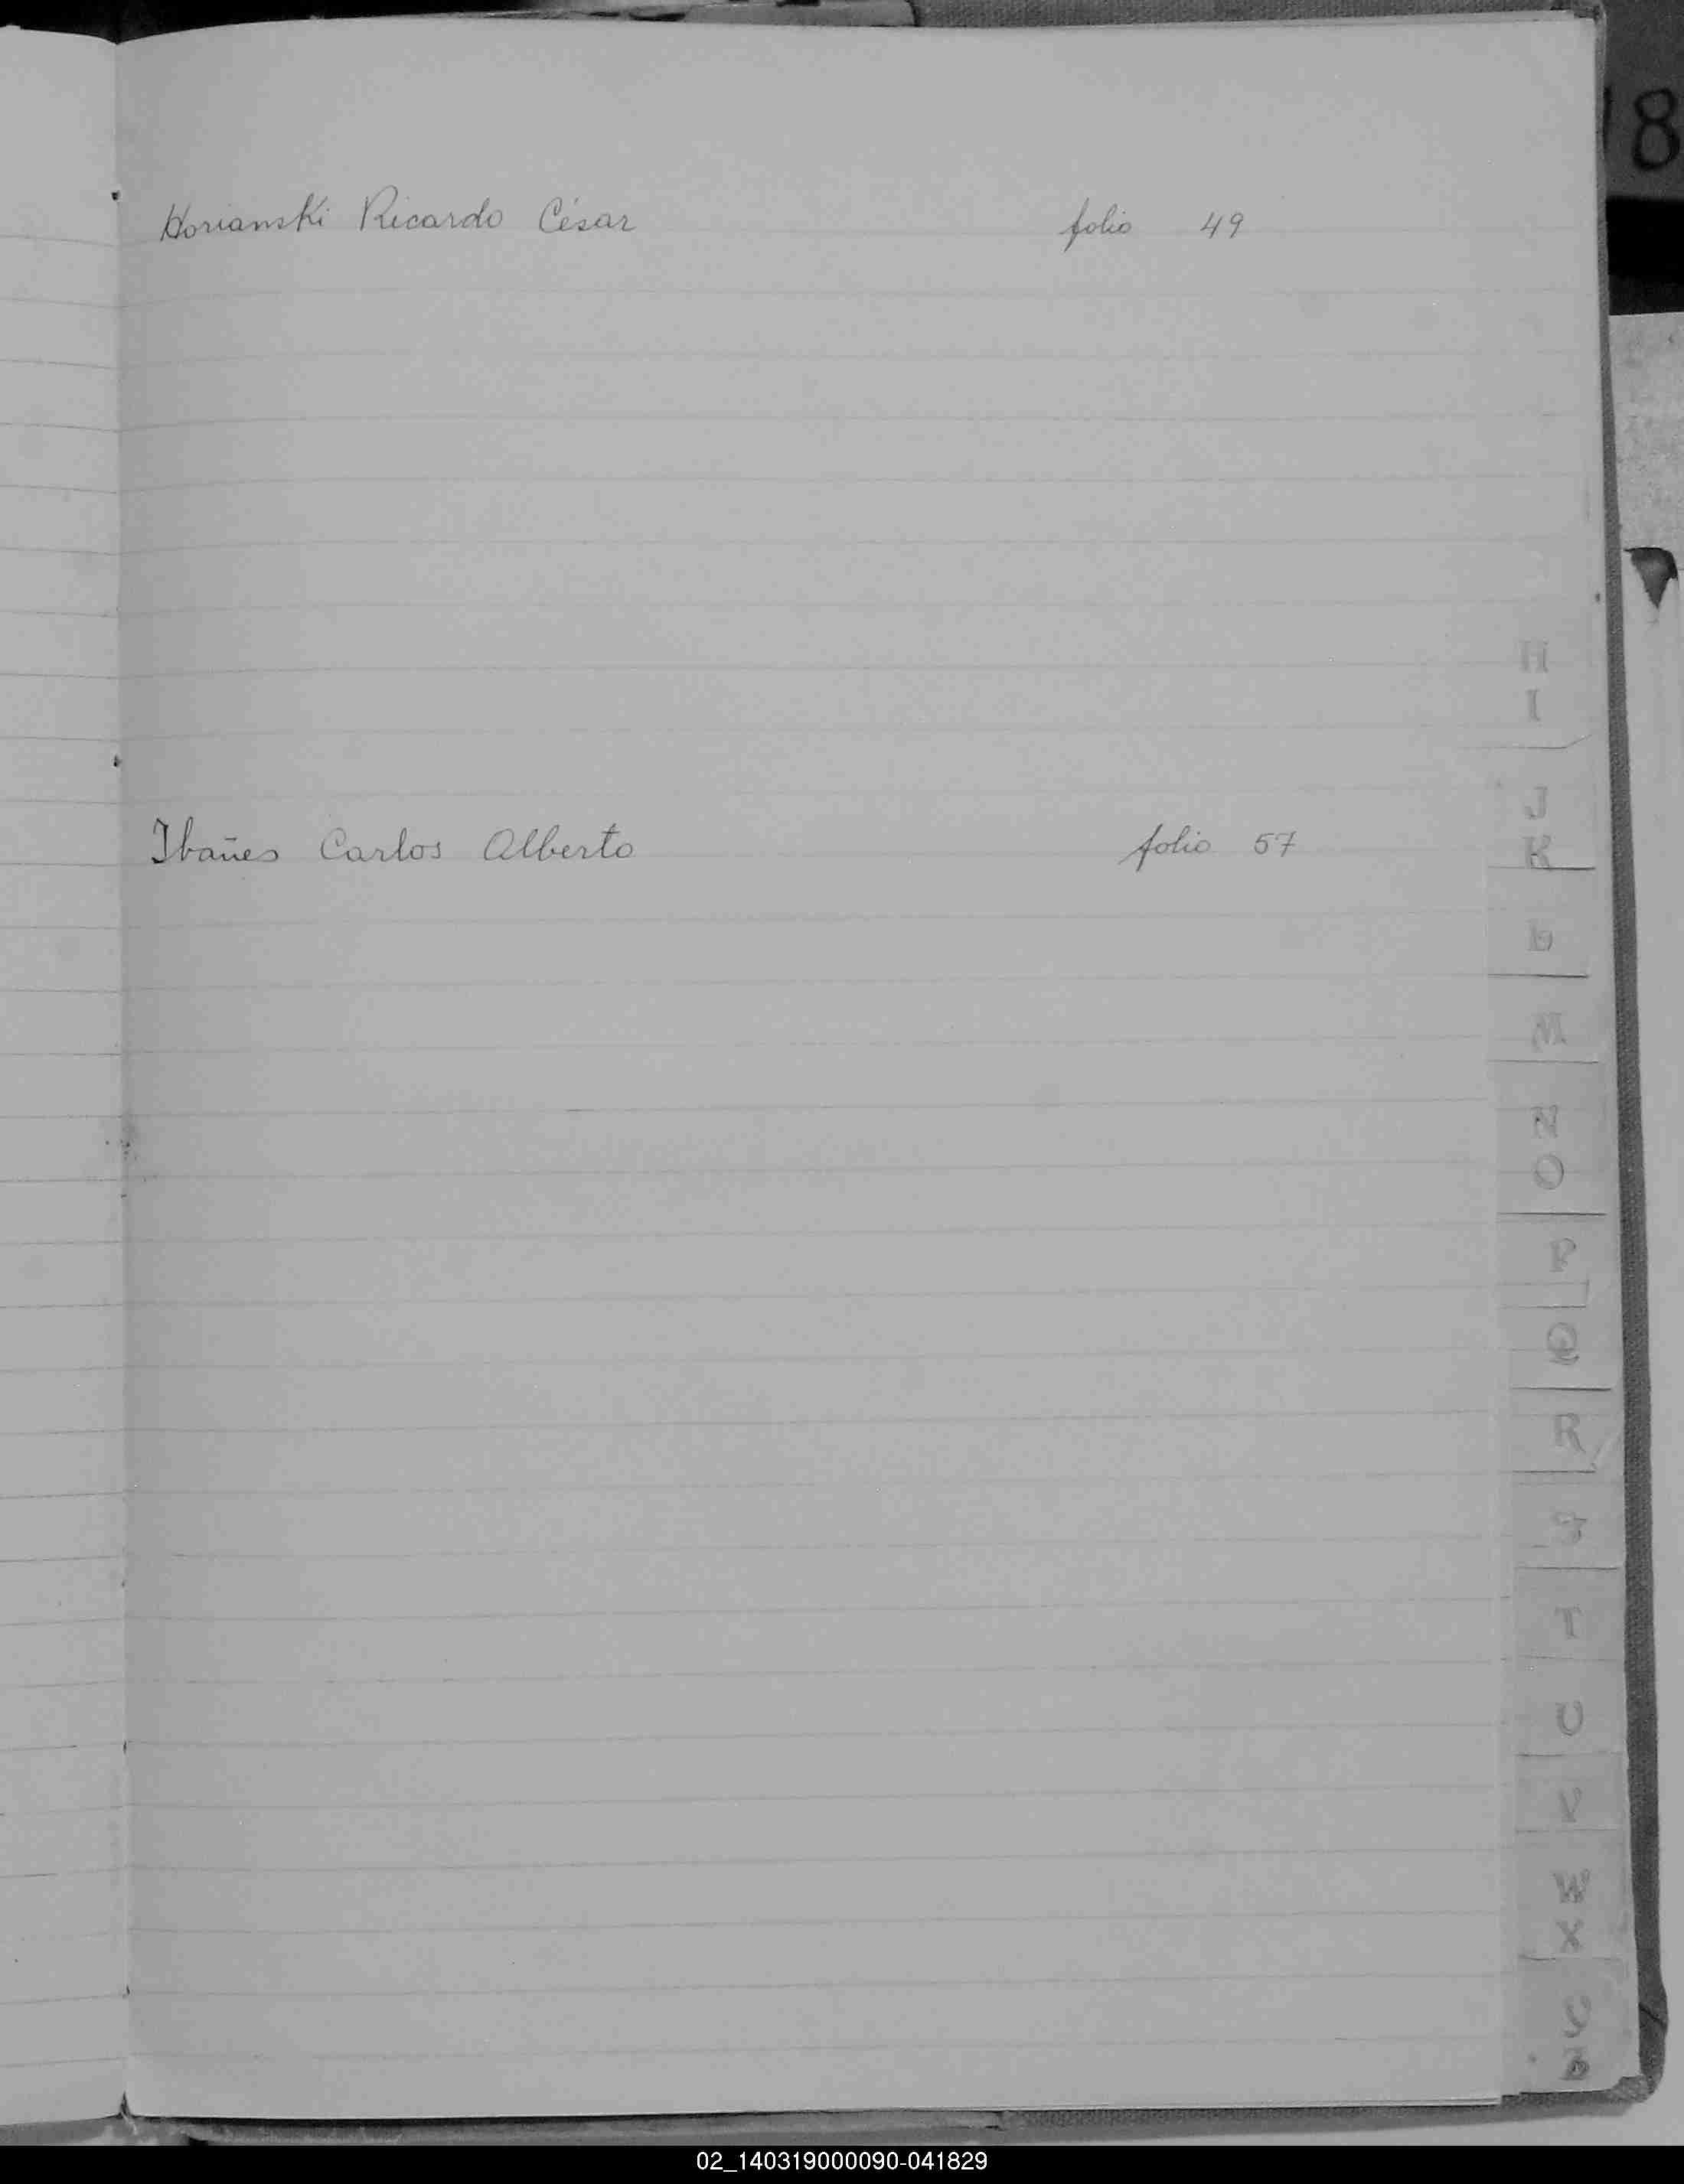 Horianski Ricardo César folio 49
Ibañes Carlos Alberto folio 57
H
I
J
K
L
M
N
O
P
Q
R
S
T
U
V
W
X
Y
Z
8
02_140319000090-041829